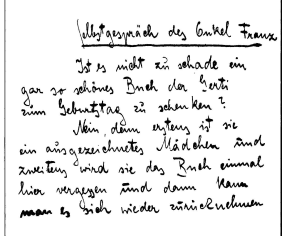 Selbstgespräch des Onkel Franz
Ist es nicht zu schade ein
gar so schönes Buch der Gerti
zum Geburtstag zu schenken?
Nein, denn erstens ist sie
ein ausgezeichnetes Mädchen und
zweitens wird sie das Buch einmal
hier vergessen und dann kann
man es sich wieder zurücknehmen